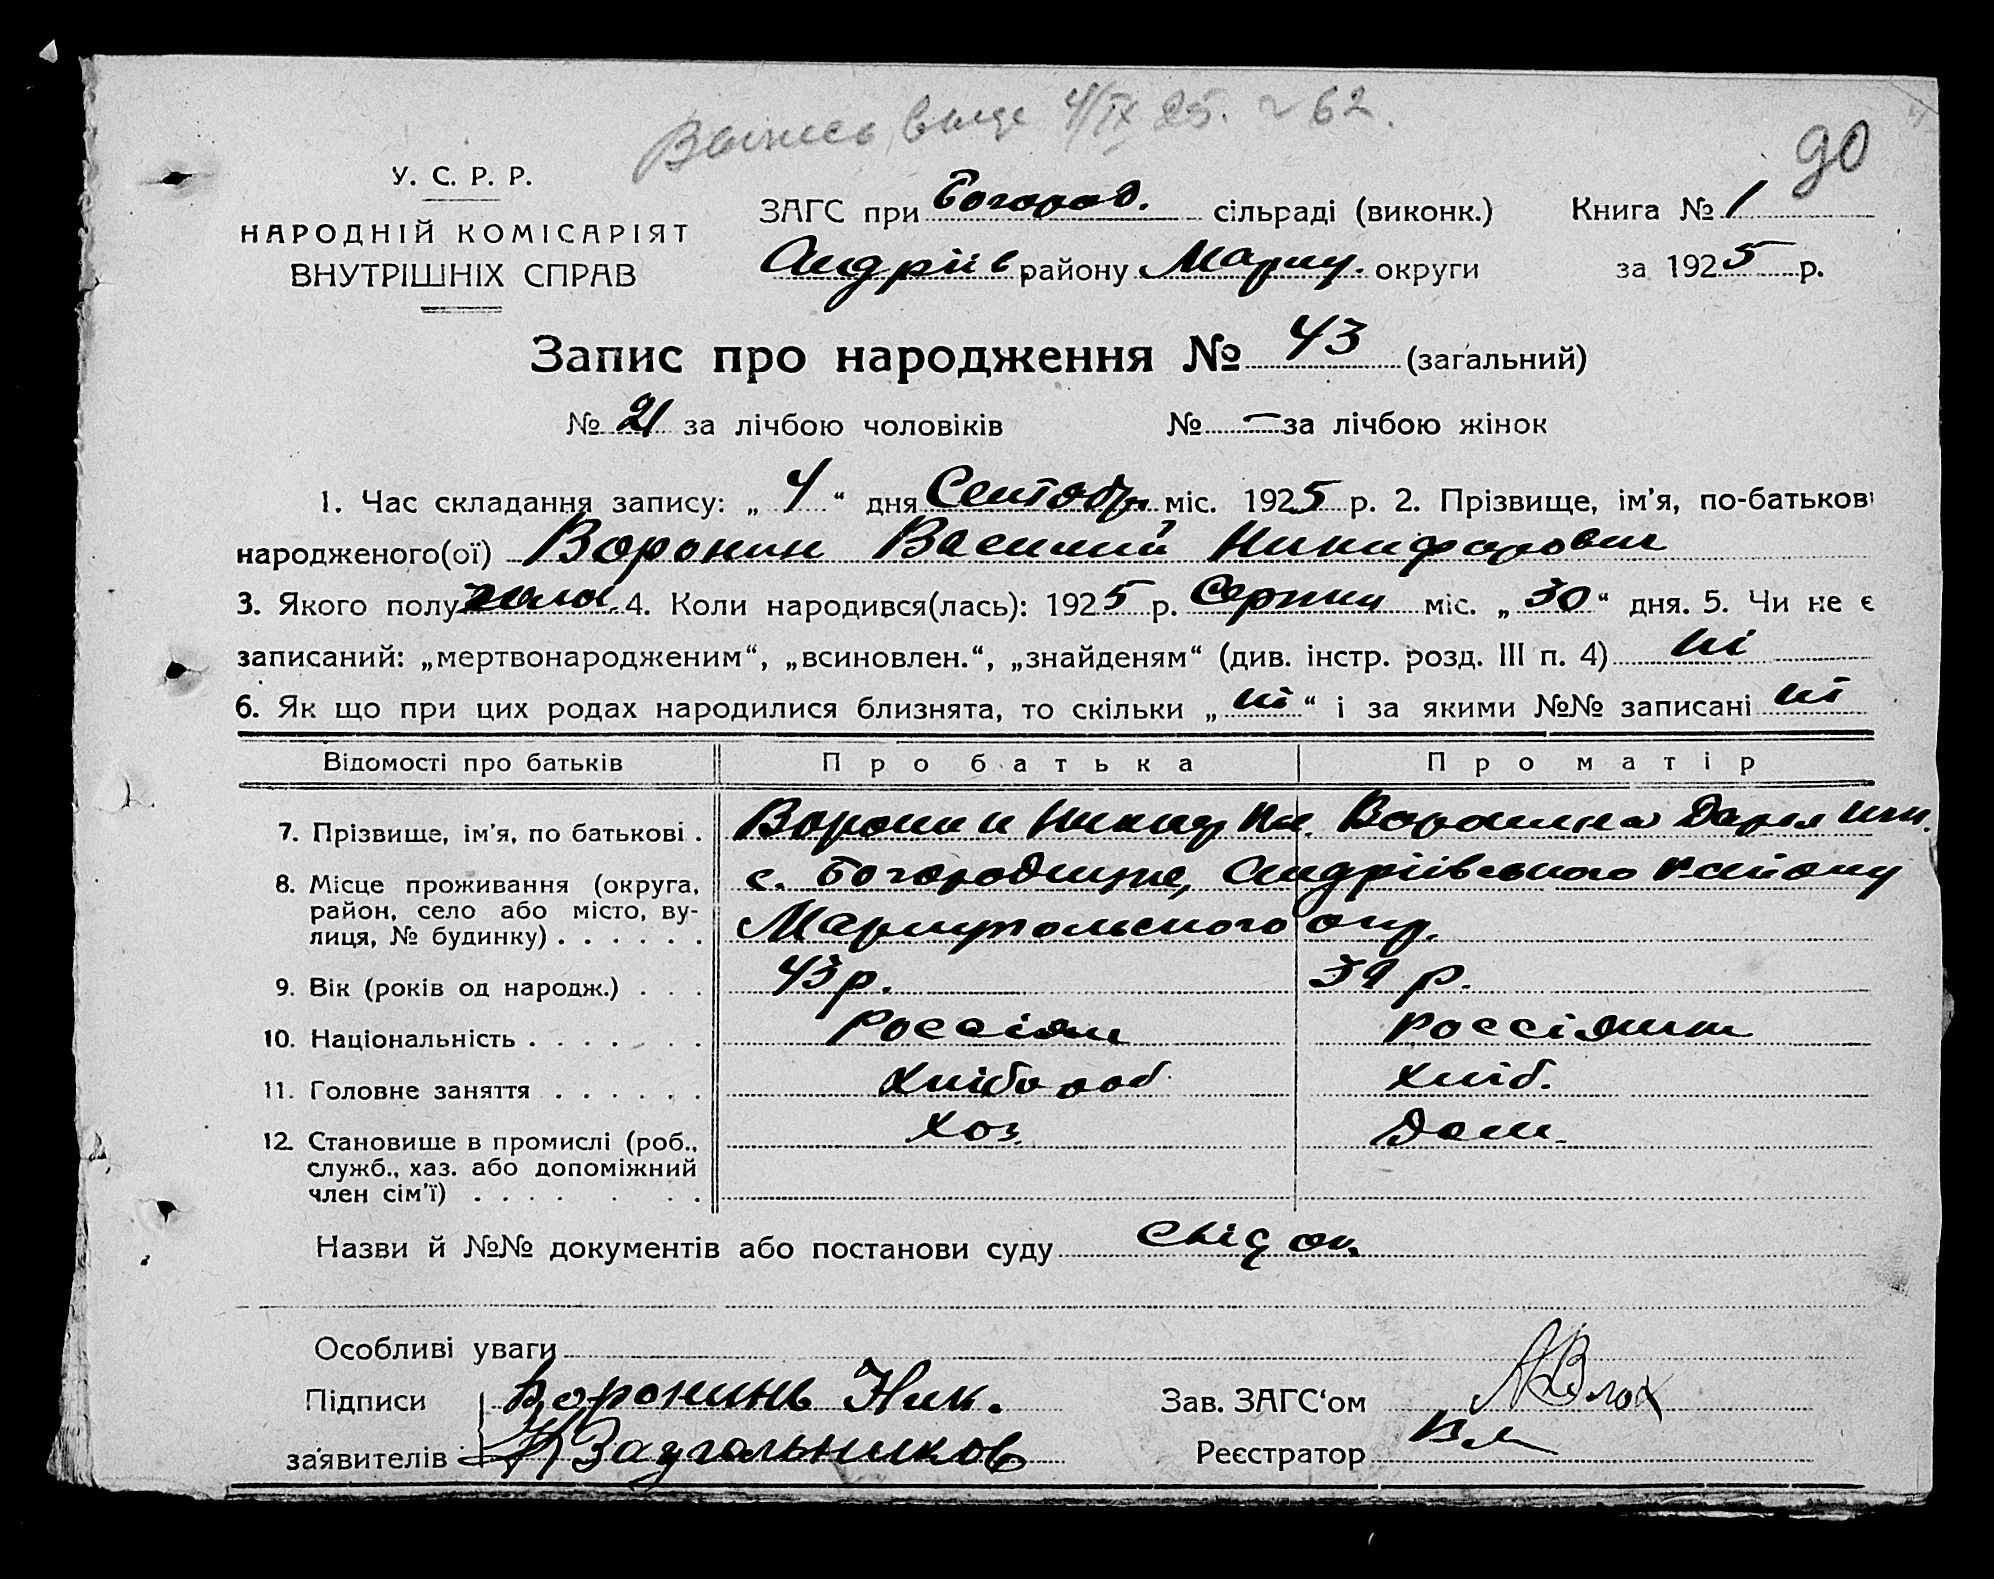 Выпись выде 4/IX 25. № 62.
90
У. С. Р. Р.
НАРОДНІЙ КОМІСАРІЯТ
ВНУТРІШНІХ СПРАВ
ЗАГС при Богород. сільраді (виконк.) Книга № 1
Андріїв району Мариу. округи за 1925 р.
Запис про народження № 43 (загальний)
№ 21 за лічбою чоловіків № — за лічбою жінок
1. Час складання запису: „ 4 “ дня Сентобр. міс. 1925 р. 2. Прізвище, ім'я, по-батькові
народженого(ої) Воронин Василий Никифорович
3. Якого полу чолов. 4. Коли народився(лась): 1925 р. Серпня міс. „ 30 “ дня. 5. Чи не є
записаний: „мертвонародженим“, „всиновлен.“, „знайденям“ (див. інстр. розд. III п. 4) ні
6. Як що при цих родах народилися близнята, то скільки „ ні “ і за якими №№ записані ні
Відомості про батьків Про батька Про матір
7. Прізвище, ім'я, по батькові . Воронин Никиф Воронина Дария
8. Місце проживання (округа, район, село або місто, вулиця, № будинку) . . . . . . с. Богородичне, Андріївського району
Мариупольского окр.
9. Вік (років од народж.) . . . 43 р. 39 р.
10. Національність . . . . . . . Россіян Россіянка
11. Головне заняття . . . . . . Хлібороб Хліб.
12. Становище в промислі (роб., Хоз. Дом.
служб., хаз. або допоміжний
член сім'ї) . . . . . . .
Назви й №№ документів або постанови суду Свідок.
Особливі уваги
Підписи Воронинъ Ник. Зав. ЗАГС‘ом
заявителів Заугольников Реєстратор